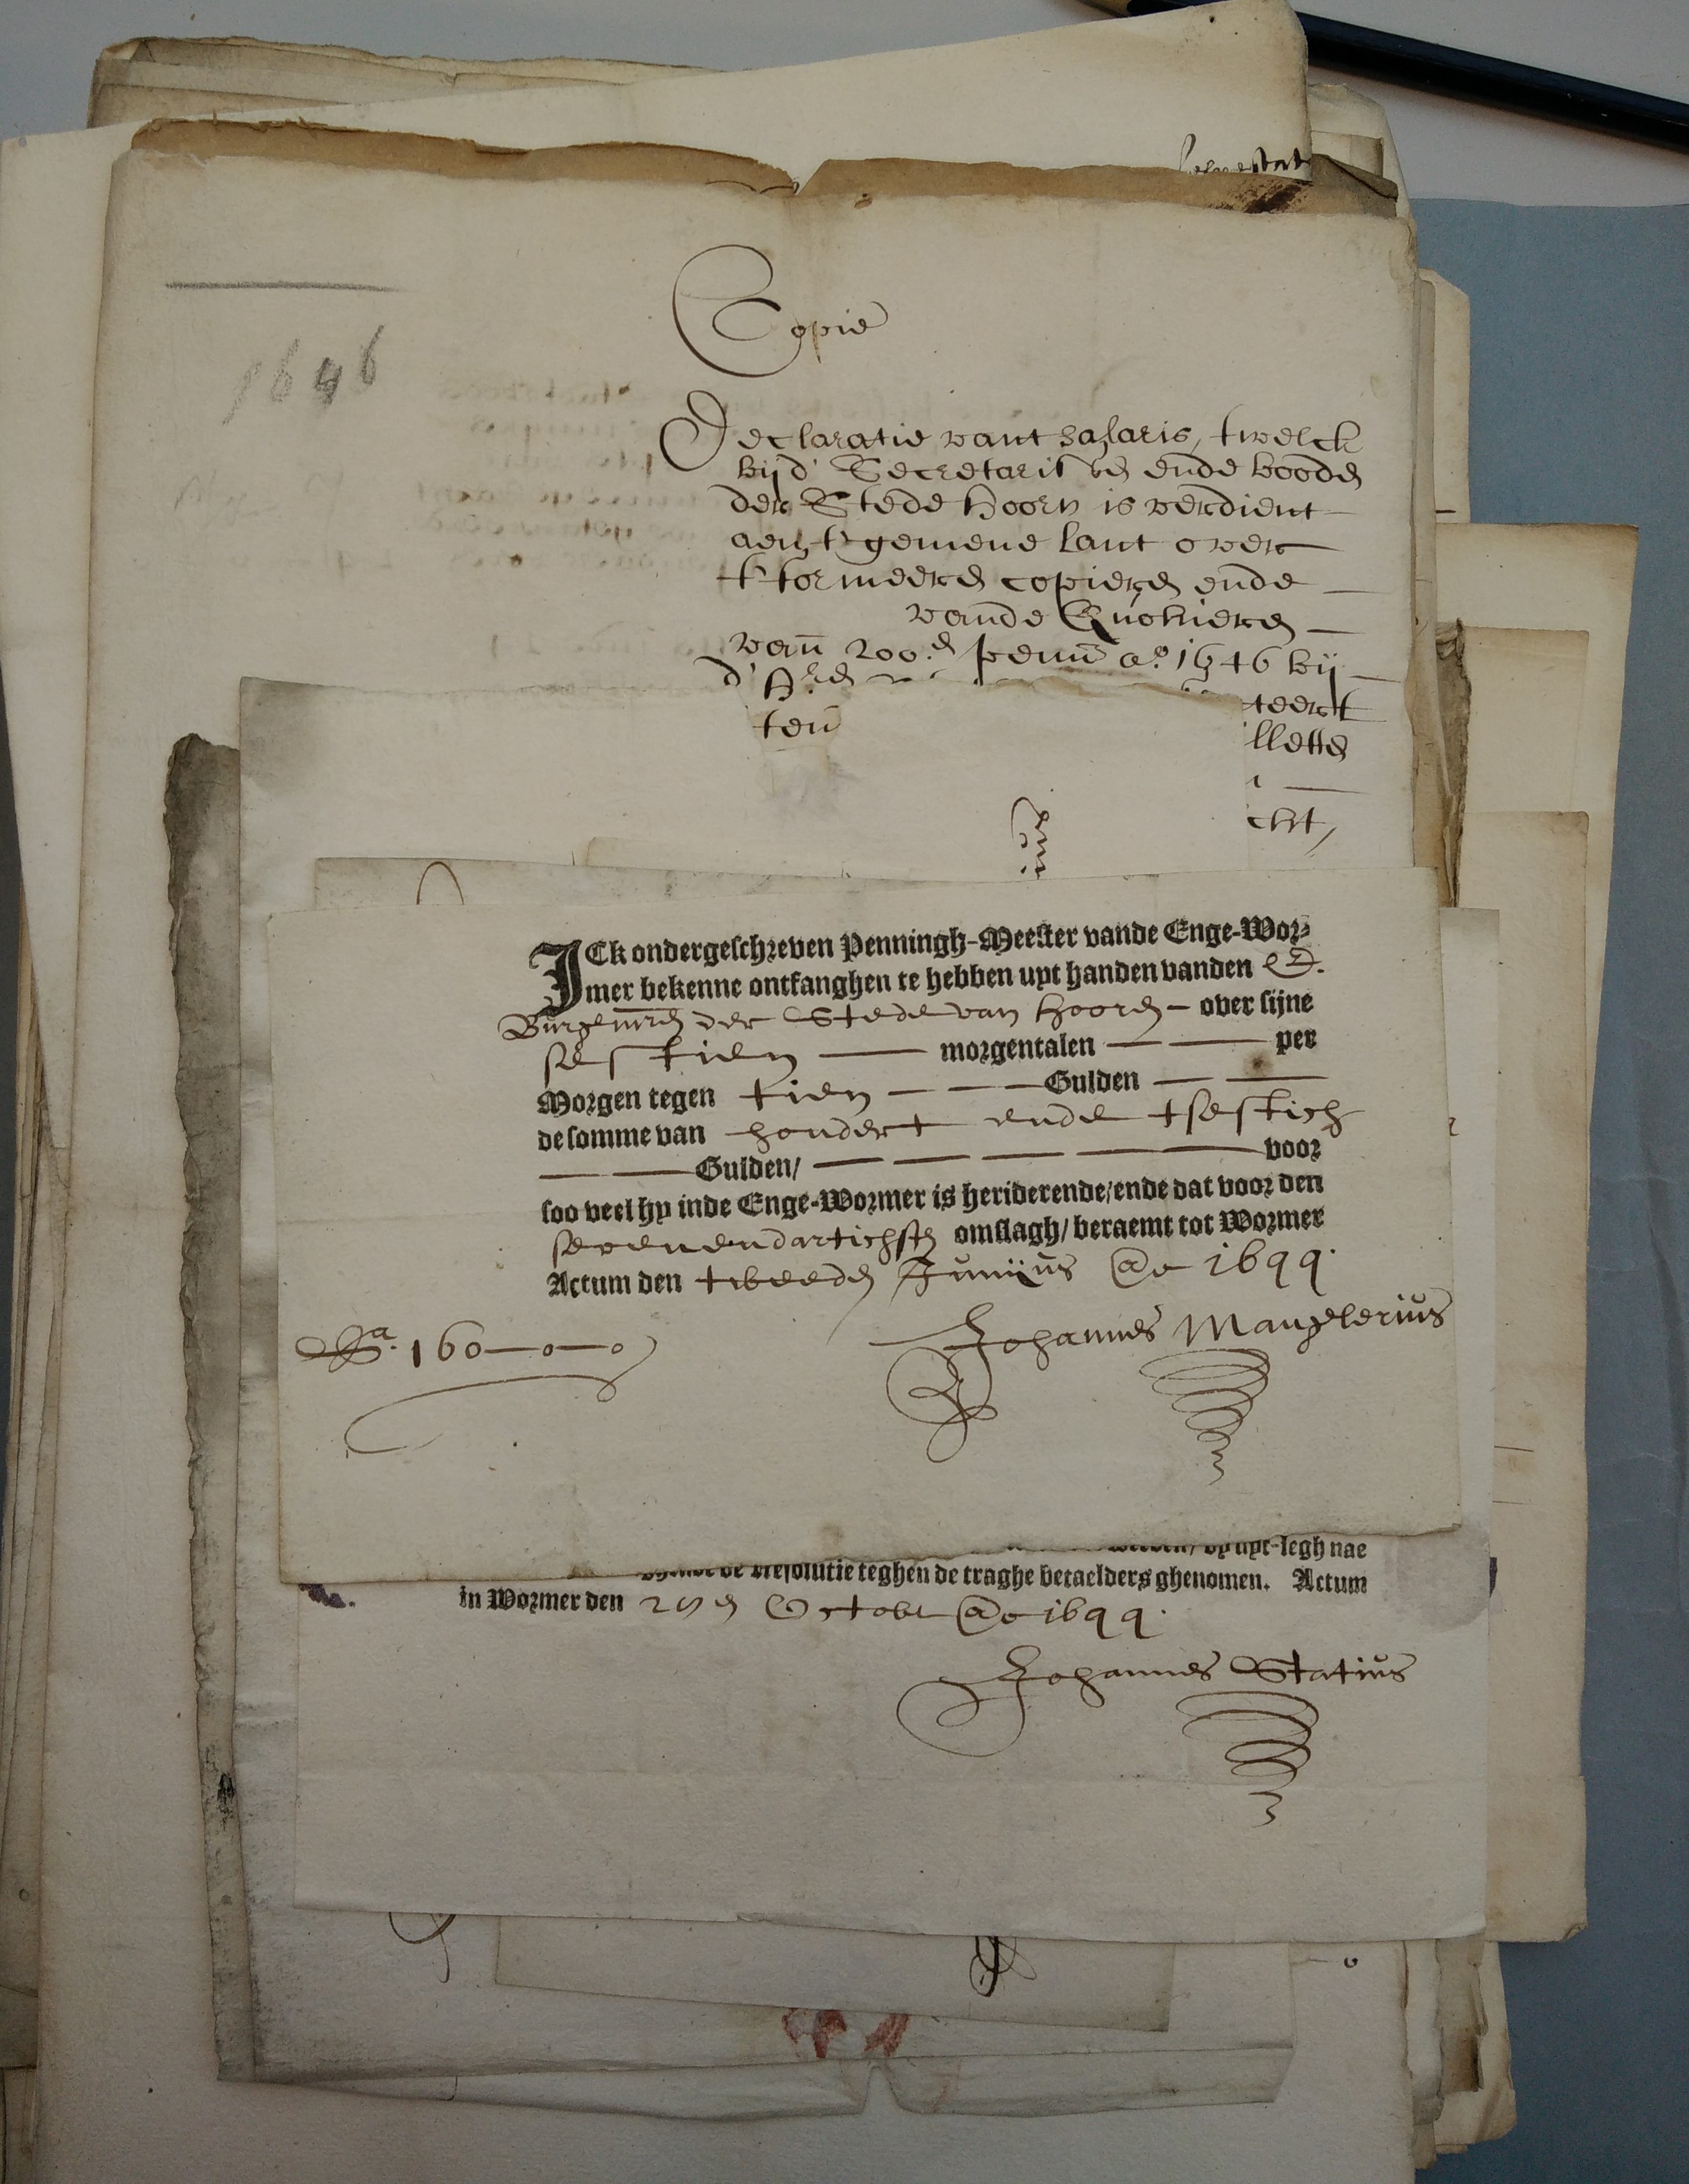 1646
Copie
Declaratie vant salaris, twelck
bij d' Secretaris en ende booden
der Stede Hoorn is verdient
aen 't gemene lant over
't formeeren copieren ende
vande Quohieren
van 200.en penn ao. 1646 bij
d' H.ren
ten teert
lletten
cht,
ICk ondergeschreven Penningh-Meester vande Enge-Wor-
mer bekenne ontfanghen te hebben uyt handen vanden E.
Burgemren der Stede van Hooren - over sijne
sestien morgentalen per
Morgen tegen tien Gulden
de somme van hondert ende tsestich
Gulden/ voor
soo veel hy inde Enge-Wormer is heriderende/ende dat voor den
sevenendartichsten omslagh/beraemt tot Wormer
Actum den tweeden Junijus Ao 1644.
Sa. 160-0-0
Johannes Mangelerius
uyt-legh nae
de Resolutie teghen de traghe betaelders ghenomen. Actum
in Wormer den Octobr Ao 1644.
Johannes Statius